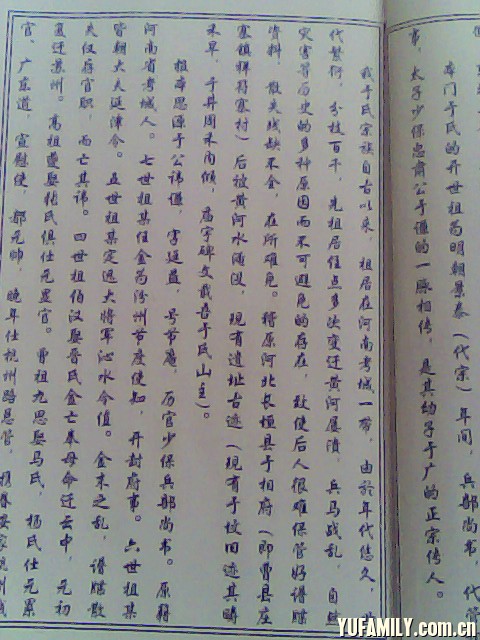 本门于氏的开世祖为明朝景泰（代宗）年间，兵部尚书，代管
事，太子少保忠肃公于谦的一脉相传，是其幼子于广的正宗传人。
我于氏宗族自古以来，祖居在河南考城一带，由於年代悠久，世
代繁衍，分枝百千，先祖居住点多次变迁黄河屡溃，兵马战乱，自然
灾害等历史的多种原因而不可避免的存在，致使后人很难保管好谱牒
资料，散失残缺不全，在所难免。将原河北长垣县于相府（即曹县庄
寨镇祥符寨村）后被黄河水淹没，现有遗址古迹（现有于坟旧迹其时
未早，于井周禾内倾，庙宇碑文载吾于氏山主）。
祖本思源于公讳谦，字廷益，号节庵，历官少保兵部尚书。原籍
河南省考城人。七世祖某任金为汾州节度使知，开封府事。六世祖某
皆朝大夫延津令。五世祖某定远大将军沁水令值。金末之乱，谱牒散
失仅存官职，而亡其讳。四世祖伯汉娶晋氏金亡奉母命迁云中，元初
复迁苏州。高祖夔娶张氏俱仕元显官。曾祖九思娶马氏，杨氏仕元系
官、广东道，宣慰使，都元帅，晚年仕杭州路总管，携眷安家杭州
YUFAMILY.com.cn